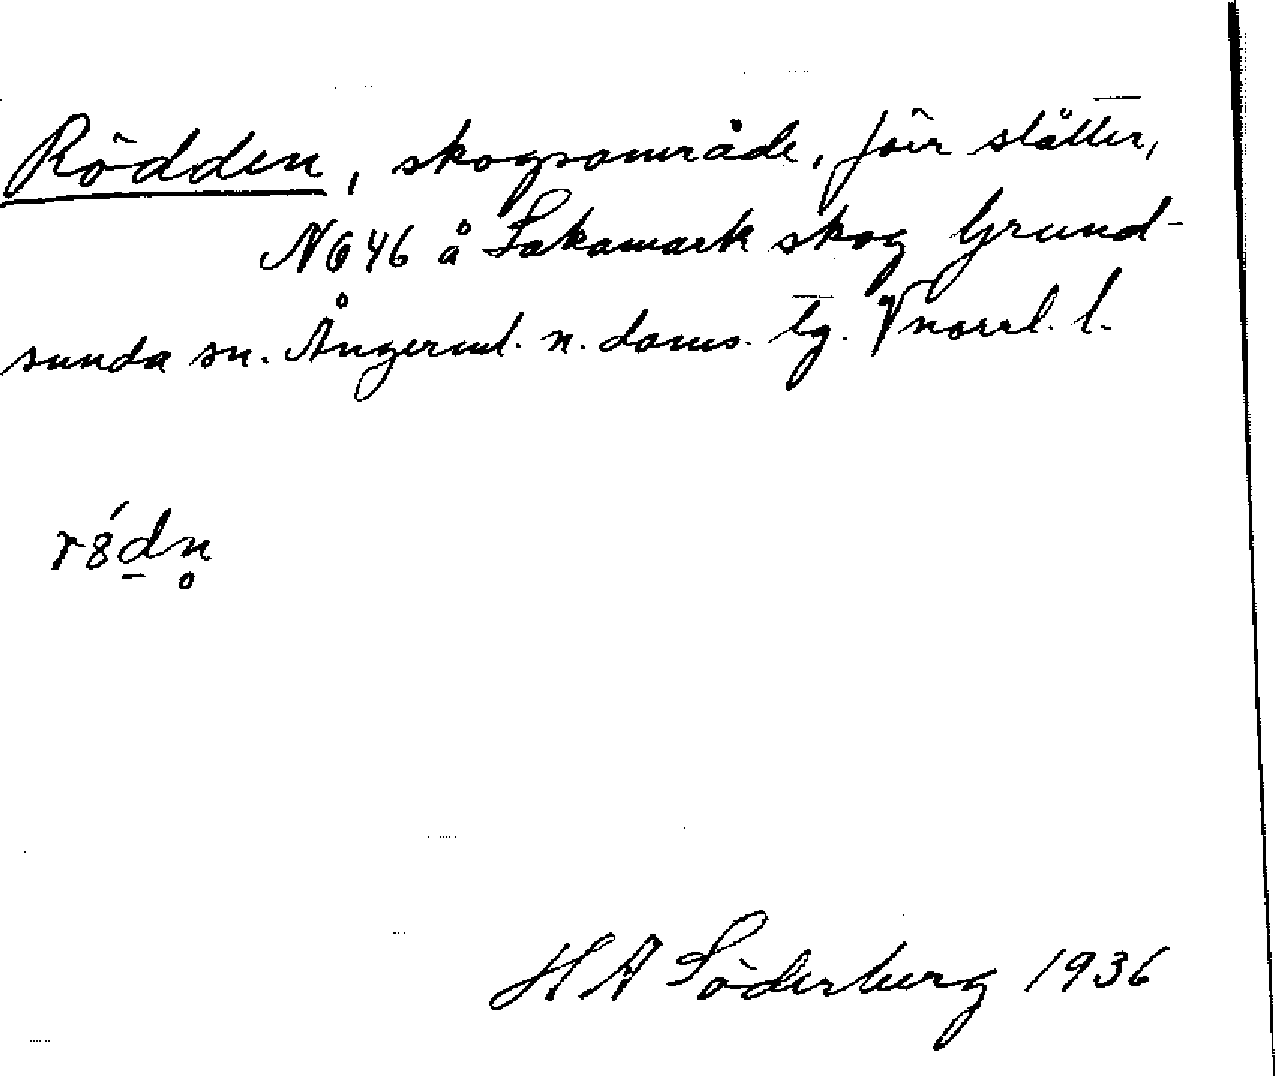 Rödden, skogsområde, förr slåtter,
N646 å Sakamark skog Grund-
sunda sn. Ångerml. n. doms. tg. Vnorrl. l.
r8́d̲n̥
H A Söderberg 1936